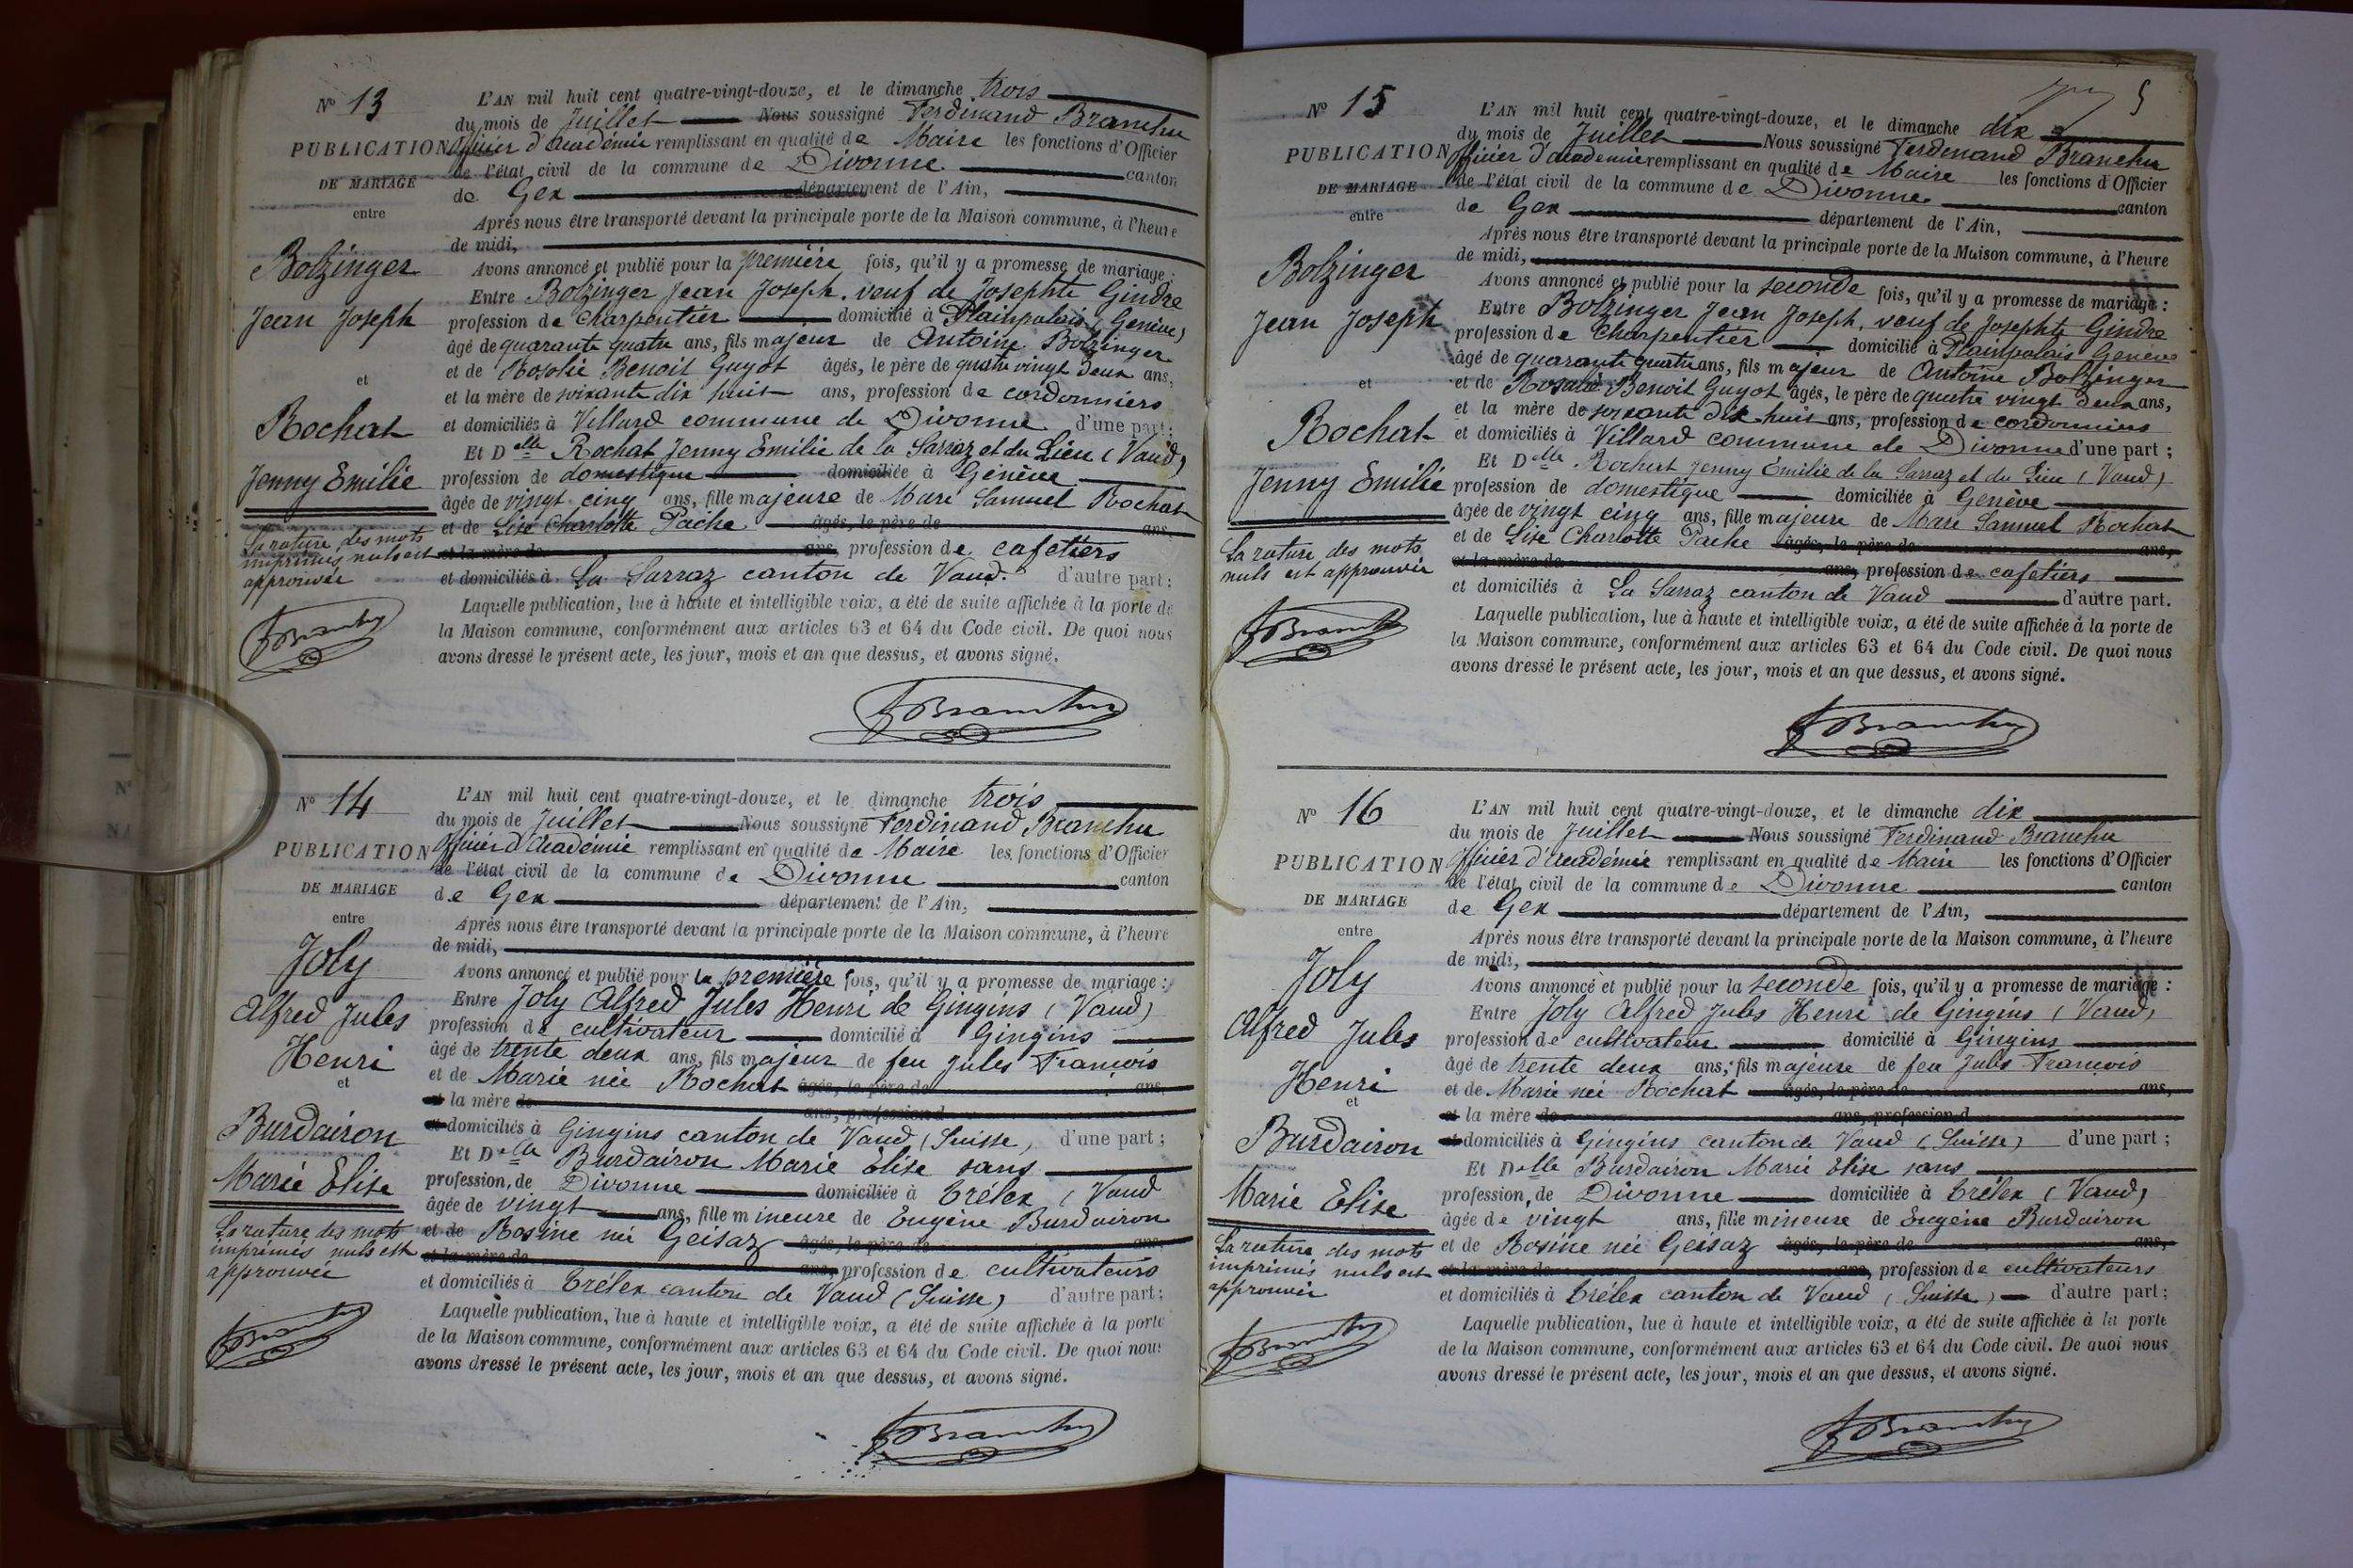 N° 13
PUBLICATION
DE MARIAGE
entre
Bolzinger
Jean Joseph
et
Rochat
Jenny Emilie
La rature des mots
imprimés nuls est
approuvée
FBranchu
L'AN mil huit cent quatre-vingt-douze, et le dimanche trois
du mois de Juillet Nous soussigné Ferdinand Branchu
officier d'académie remplissant en qualité de Maire les fonctions d'Officier
de l'état civil de la commune de Divonne canton
de Gex département de l'Ain,
Après nous être transporté devant la principale porte de la Maison commune, à l'heure
de midi,
Avons annoncé et publié pour la première fois, qu'il y a promesse de mariage :
Entre Bolzinger Jean Joseph, veuf de Josephte Gindre
profession de charpentier domicilié à Plainpalais (Genève)
âgé de quarante quatre ans, fils majeur de Antoine Bolzinger
et de Rosalie Benoit Guyot âgés, le père de quatre vingt deux ans,
et la mère de soixante dix huit ans, profession de cordonniers
et domiciliés à Villard commune de Divonne d'une part ;
Et Delle Rochat Jenny Emilie de la Sarraz et du Lieu (Vaud)
profession de domestique domiciliée à Genève
âgée de vingt cinq ans, fille majeure de Marc Samuel Rochat
et de Lise Charlotte Pache âgés, le père de ans,
et la mère de ans, profession de cafetiers
et domiciliés à La Sarraz canton de Vaud. d'autre part ;
Laquelle publication, lue à haute et intelligible voix, a été de suite affichée à la porte de
la Maison commune, conformément aux articles 63 et 64 du Code civil. De quoi nous
avons dressé le présent acte, les jour, mois et an que dessus, et avons signé.
FBranchu
N° 14
PUBLICATION
DE MARIAGE
entre
Joly
Alfred Jules
Henri
et
Burdairon
Marie Elise
La rature des mots
imprimés nuls est
approuvée
FBranchu
L'AN mil huit cent quatre-vingt-douze, et le dimanche trois
du mois de Juillet Nous soussigné Ferdinand Branchu
officier d'académie remplissant en qualité de Maire les fonctions d'Officier
de l'état civil de la commune de Divonne canton
de Gex département de l'Ain,
Après nous être transporté devant la principale porte de la Maison commune, à l'heure
de midi,
Avons annoncé et publié pour la première fois, qu'il y a promesse de mariage :
Entre Joly Alfred Jules Henri de Gingins (Vaud)
profession de cultivateur domicilié à Gingins
âgé de trente deux ans, fils majeur de feu Jules François
et de Marie née Rochat âgés, le père de ans,
et la mère de ans, profession d
et domiciliés à Gingins canton de Vaud (Suisse) d'une part ;
Et Delle Burdairon Marie Elise sans
profession, de Divonne domiciliée à Trélex (Vaud
âgée de vingt ans, fille mineure de Eugène Burdairon
et de Rosine née Geisaz âgés, le père de ans,
et la mère de ans, profession de cultivateurs
et domiciliés à Trélex canton de Vaud (Suisse) d'autre part ;
Laquelle publication, lue à haute et intelligible voix, a été de suite affichée à la porte
de la Maison commune, conformément aux articles 63 et 64 du Code civil. De quoi nous
avons dressé le présent acte, les jour, mois et an que dessus, et avons signé.
FBranchu
5
N° 15
PUBLICATION
DE MARIAGE
entre
Bolzinger
Jean Joseph
et
Rochat
Jenny Emilie
La rature des mots
nuls est approuvée
FBranchu
L'AN mil huit cent quatre-vingt-douze, et le dimanche dix
du mois de Juillet Nous soussigné Ferdinand Branchu
officier d'académie remplissant en qualité de Maire les fonctions d'Officier
de l'état civil de la commune de Divonne canton
de Gex département de l'Ain,
Après nous être transporté devant la principale porte de la Maison commune, à l'heure
de midi,
Avons annoncé et publié pour la seconde fois, qu'il y a promesse de mariage :
Entre Bolzinger Jean Joseph, veuf de Josephte Gindre
profession de Charpentier domicilié à Plainpalais Genève
âgé de quarante quatre ans, fils majeur de Antoine Bolzinger
et de Rosalie Benoit Guyot âgés, le père de quatre vingt deux ans,
et la mère de soixante dix huit ans, profession de cordonniers
et domiciliés à Villard commune de Divonne d'une part ;
Et Delle Rochat Jenny Emilie de la Sarraz et du Lieu (Vaud)
profession de domestique domiciliée à Genève
âgée de vingt cinq ans, fille majeure de Marc Samuel Rochat
et de Lise Charlotte Pache âgés, le père de ans,
et la mère de ans, profession de cafetiers
et domiciliés à La Sarraz canton de Vaud d'autre part.
Laquelle publication, lue à haute et intelligible voix, a été de suite affichée à la porte de
la Maison commune, conformément aux articles 63 et 64 du Code civil. De quoi nous
avons dressé le présent acte, les jour, mois et an que dessus, et avons signé.
FBranchu
N° 16
PUBLICATION
DE MARIAGE
entre
Joly
Alfred Jules
Henri
et
Burdairon
Marie Elise
La rature des mots
imprimés nuls est
approuvée
FBranchu
L'AN mil huit cent quatre-vingt-douze, et le dimanche dix
du mois de Juillet Nous soussigné Ferdinand Branchu
officier d'académie remplissant en qualité de Maire les fonctions d'Officier
de l'état civil de la commune de Divonne canton
de Gex département de l'Ain,
Après nous être transporté devant la principale porte de la Maison commune, à l'heure
de midi,
Avons annoncé et publié pour la seconde fois, qu'il y a promesse de mariage :
Entre Joly Alfred Jules Henri de Gingins (Vaud)
profession de cultivateur domicilié à Gingins
âgé de trente deux ans, fils majeure de feu Jules François
et de Marie née Rochat âgés, le père de ans,
et la mère de ans, profession d
et domiciliés à Gingins canton de Vaud (Suisse) d'une part ;
Et Delle Burdairon Marie Elise sans
profession, de Divonne domiciliée à Trélex (Vaud)
âgée de vingt ans, fille mineure de Eugène Burdairon
et de Rosine née Geisaz âgés, le père de ans,
et la mère de ans, profession de cultivateurs
et domiciliés à Trélex canton de Vaud (Suisse) d'autre part ;
Laquelle publication, lue à haute et intelligible voix, a été de suite affichée à la porte
de la Maison commune, conformément aux articles 63 et 64 du Code civil. De quoi nous
avons dressé le présent acte, les jour, mois et an que dessus, et avons signé.
FBranchu